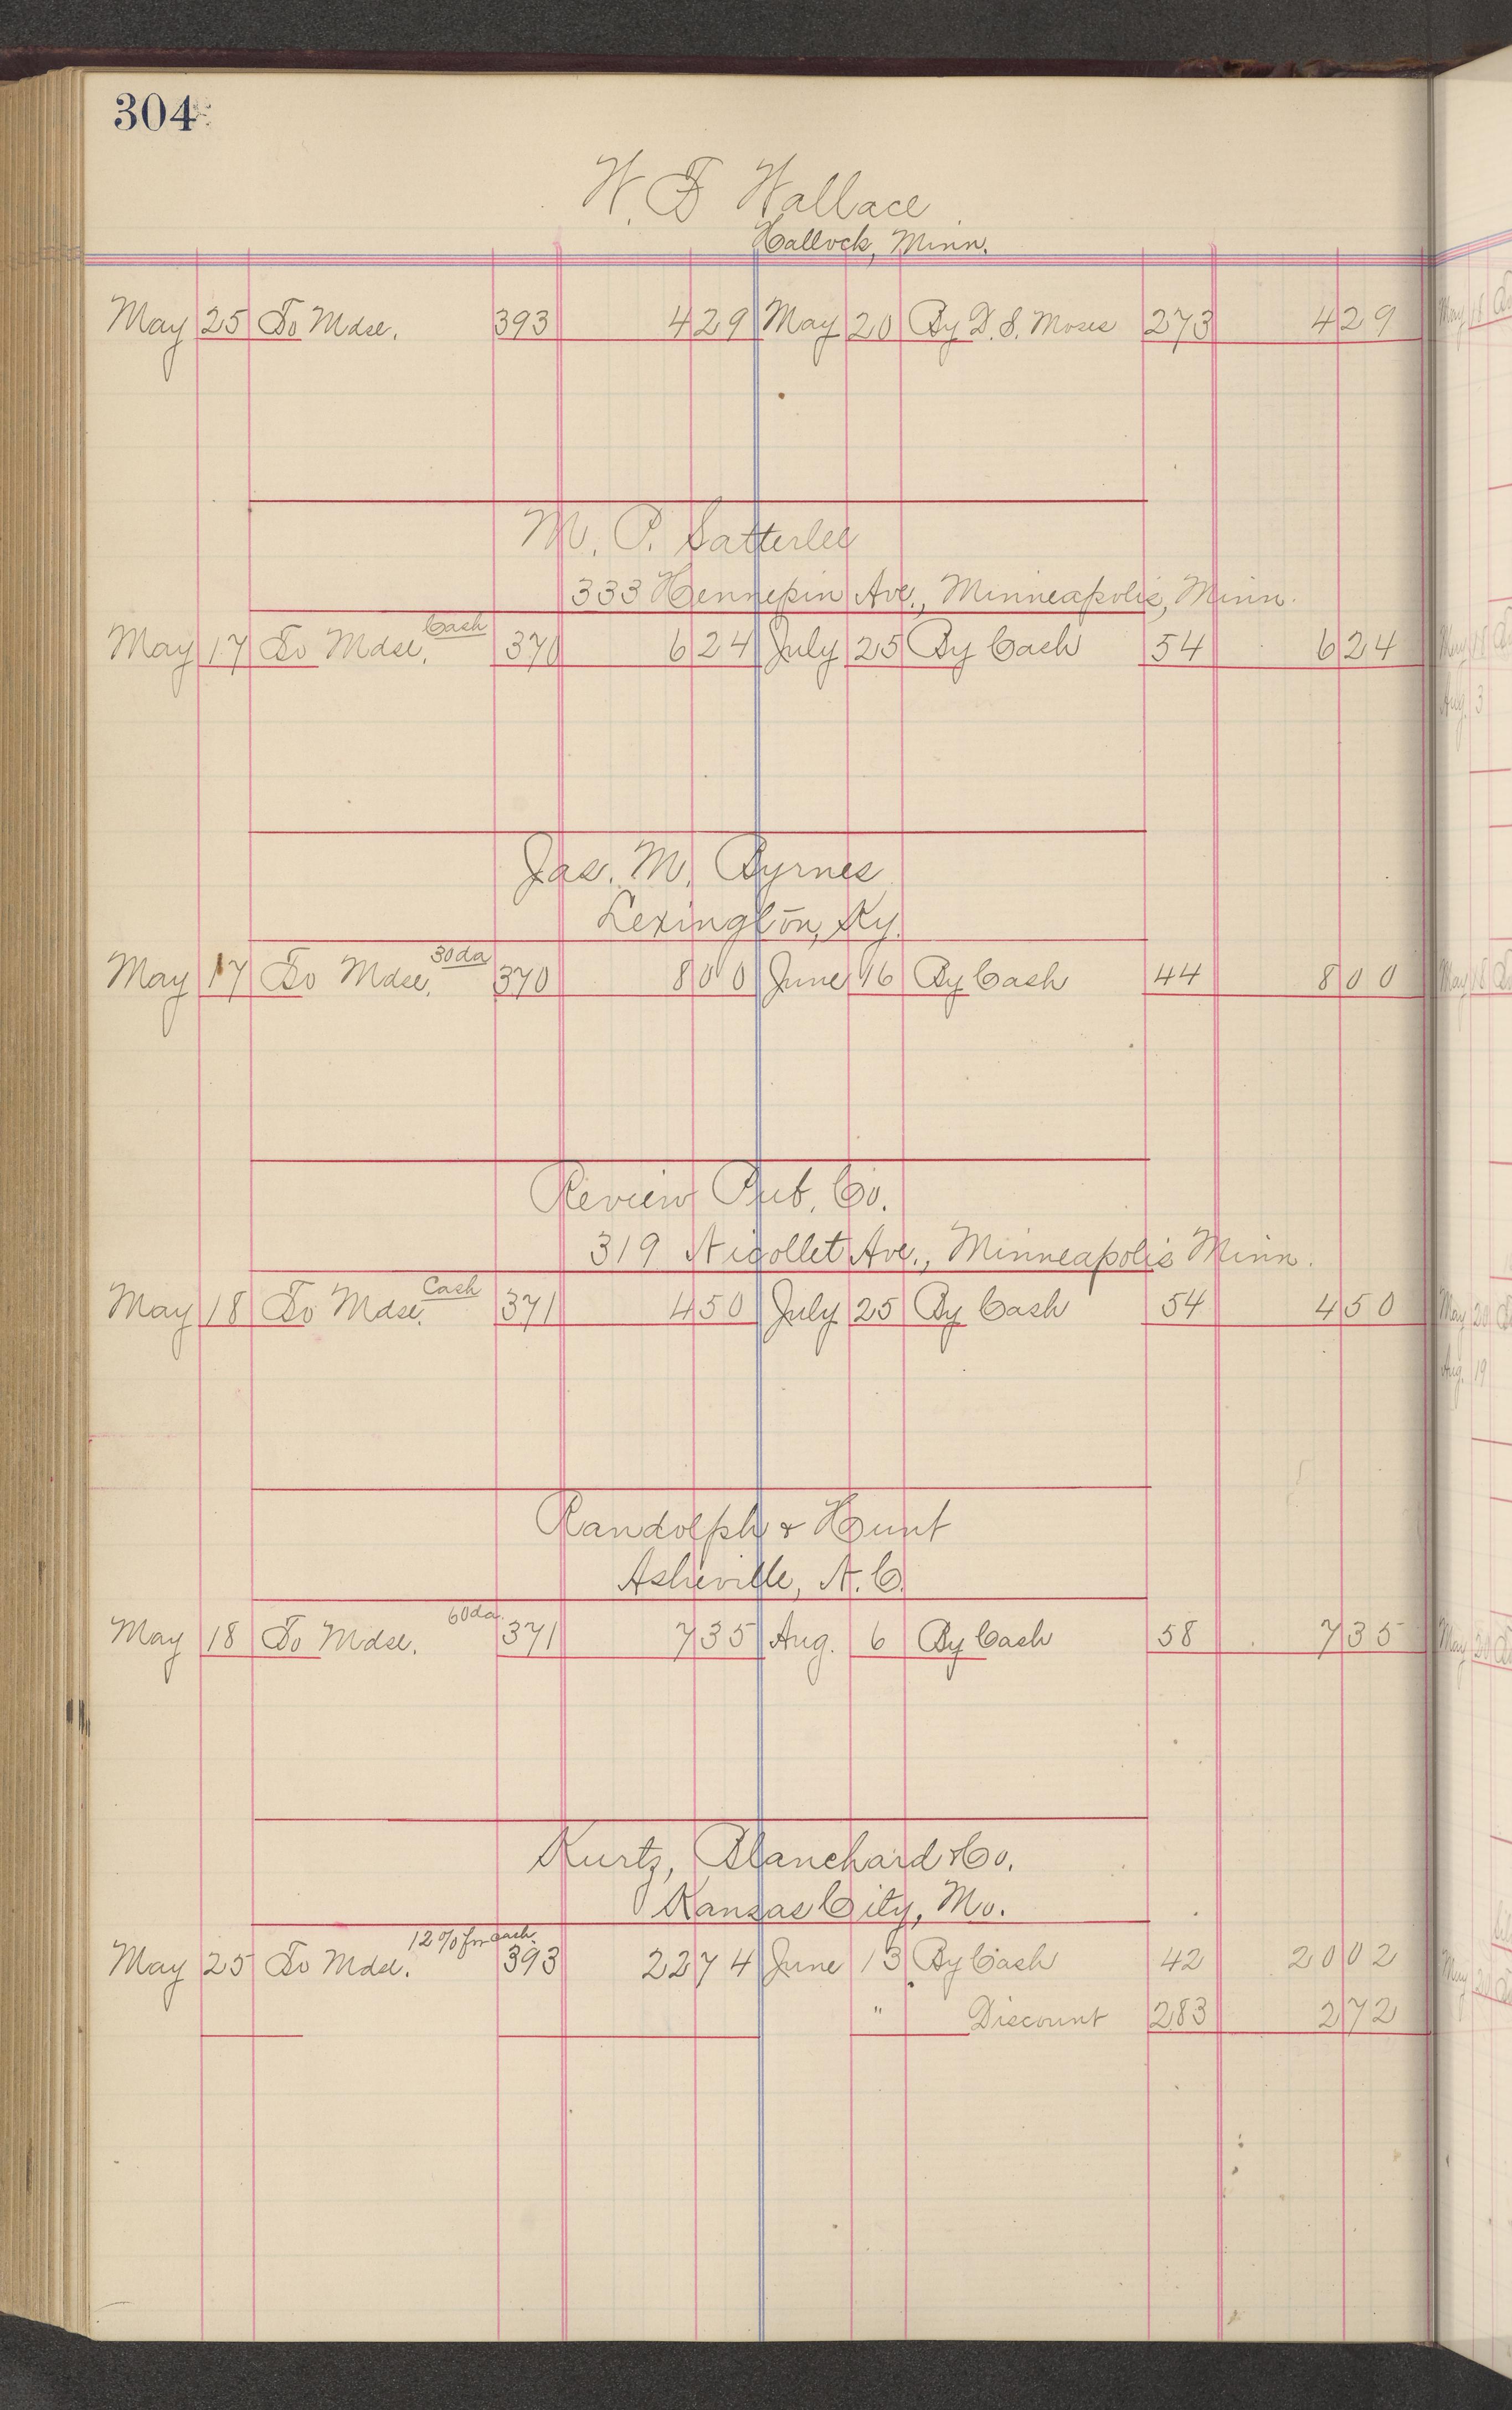 304
W. F. Wallace
Hallock, Minn.
May 25 To Mdse. 393 4 29 May 20 By D. S. Moses 273 4 29
M. P. Satterlee
333 Hennepin Ave., Minneapolis, Minn.
May 17 To Mdse. Cash 370 6 24 July 25 By Cash 54 6 24
Jas. M. Byrnes
Lexington, Ky.
May 17 To Mdse. 30 da 370 8 00 June 16 By Cash 44 8 00
Review Pub. Co.
319 Nicollet Ave., Minneapolis Minn.
May 18 To Mdse. Cash 371 4 50 July 25 By Cash 54 4 50
Randolph & Hunt
Asheville, N. C.
May 18 To Mdse. 60 da. 371 7 35 Aug. 6 By Cash 58 7 35
Kurtz, Blanchard & Co.
Kansas City, Mo.
May 25 To Mdse. 12% for cash. 393 22 74 June 13 By Cash 42 20 02
" Discount 283 2 72